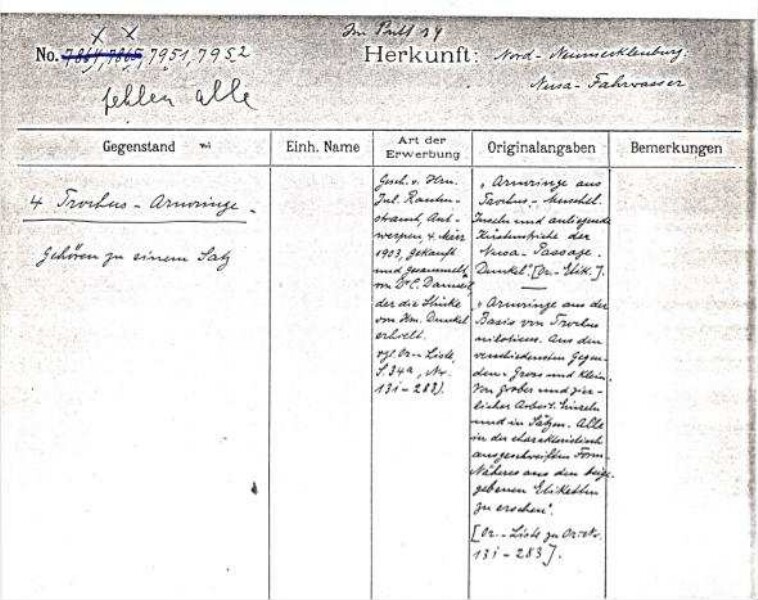 Im Pult 34
x x
No. 7864, 7865, 7951, 7952
Herkunft: Nord-Neumecklenburg:
Nusa-Fahrwasser
fehlen alle
Gegenstand
Einh. Name
Art der Erwerbung
Originalangaben
Bemerkungen
4 Trochus-Armringe.
Gehören zu einem Satz
Gesch. v. Hrn.
Jul. Rauten-
strauch, Ant-
werpen, 4. März
1903, gekauft
und gesammelt
von Dr C.
der die Stücke
von Hrn. Dunkel
erhielt.
vgl. Or-Liste,
S. 34a, Nr.
131-283).
"Armringe aus
Trochus-Muschel.
Inseln und anliegende
Küstenstriche der
Nusa-Passage.
Dunkel". [Or.-Etik.].
"Armringe aus der
Basis von Trochus
niloticus. Aus den
verschiedensten Gegen-
den. Gross und klein.
Von grober und zier-
licher Arbeit. Einzeln
und in Sätzen. Alle
in der charakteristisch
ausgeschweiften Form.
Näheres aus den beige-
gebenen Etiketten
zu ersehen".
[Or.-Liste zu Or.-Nr.
131-283].